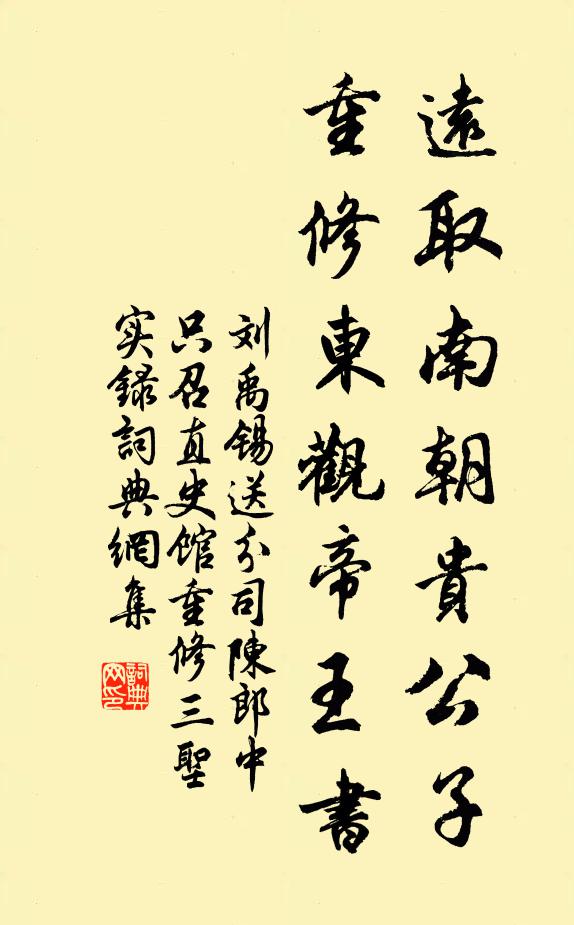 遠取南朝貴公子
重修東觀帝王書
刘禹錫送分司陳郎中
只召直史館重修三聖
实録詞典網集
詞典網印